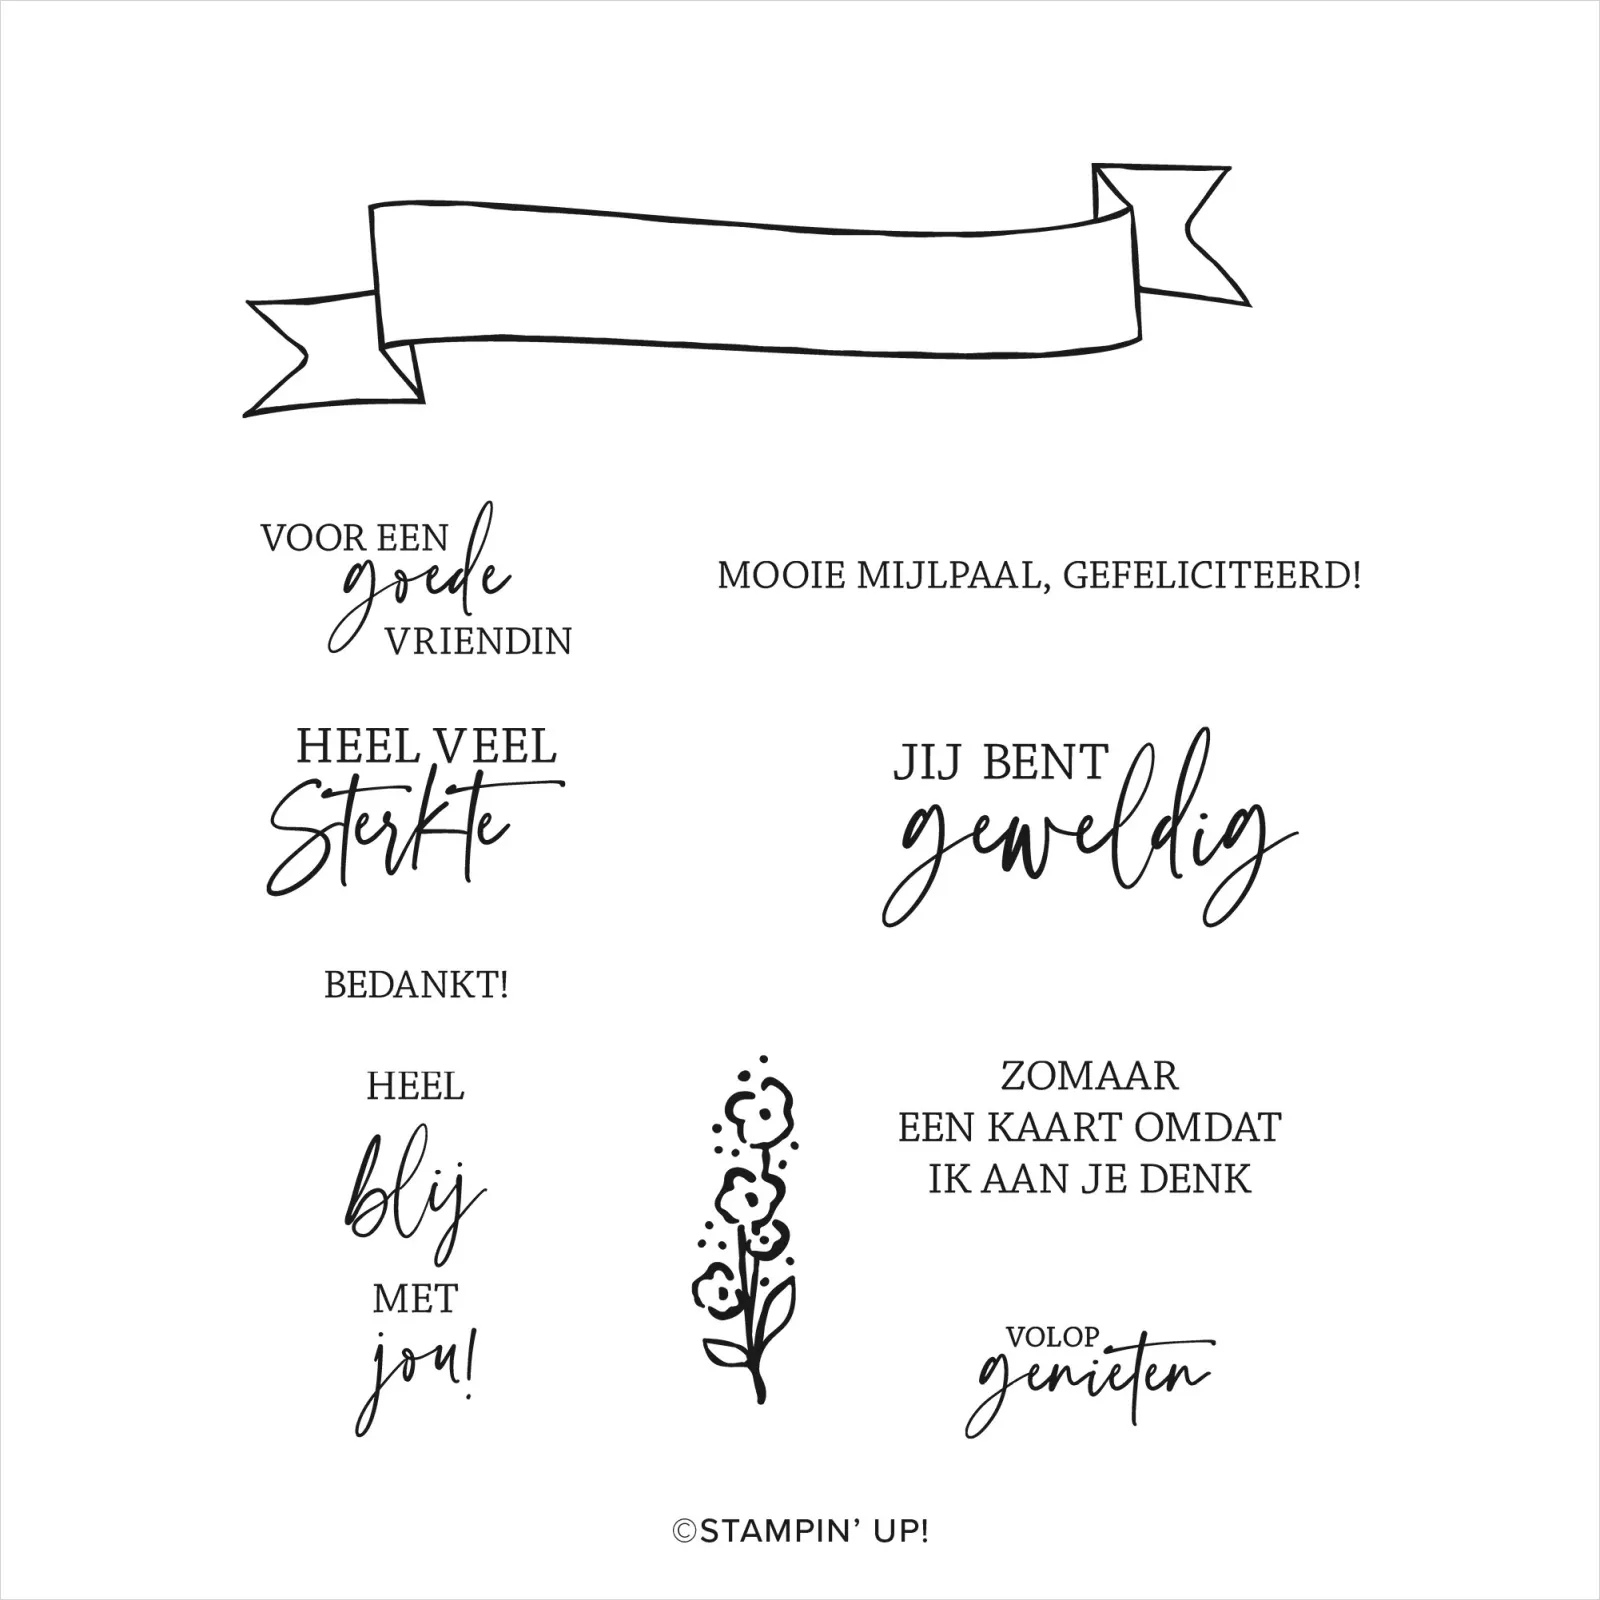 VOOR EEN
goede
VRIENDIN
MOOIE MIJLPAAL, GEFELICITEERD!
HEEL VEEL
Sterkte
JIJ BENT
geweldig
BEDANKT!
HEEL
blij
MET
jou!
ZOMAAR
EEN KAART OMDAT
IK AAN JE DENK
VOLOP
genieten
©STAMPIN’ UP!